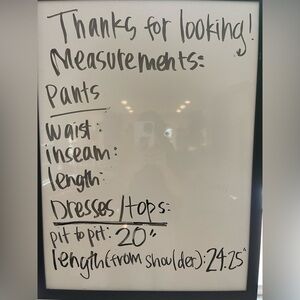 Thanks for looking!
Measurements:
Pants
waist:
inseam:
length:
Dresses/tops:
pit to pit: 20"
length(from shoulder): 24.25"